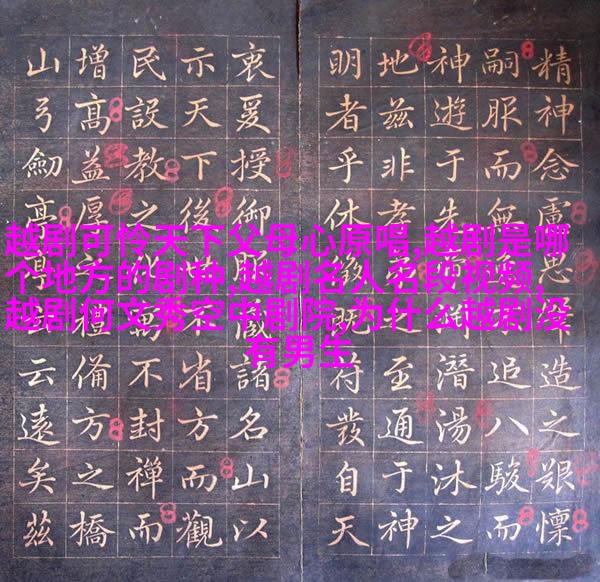 越剧可怜天下父母心原唱,越剧是哪
个地方的剧种,越剧名人名段视频,
越剧何文秀空中剧院,为什么越剧没
有男生
精神念慮思造之艱懍
嗣服而無追八駿而
神遊于先潛湯沐之
地茲非孝至通于神
明者乎休符發自天
衷爰授御諸名山以
示天下後世省方而觀
民設教之不封禪而
增高益厚備方之橋
山弓劍亭云遠矣茲